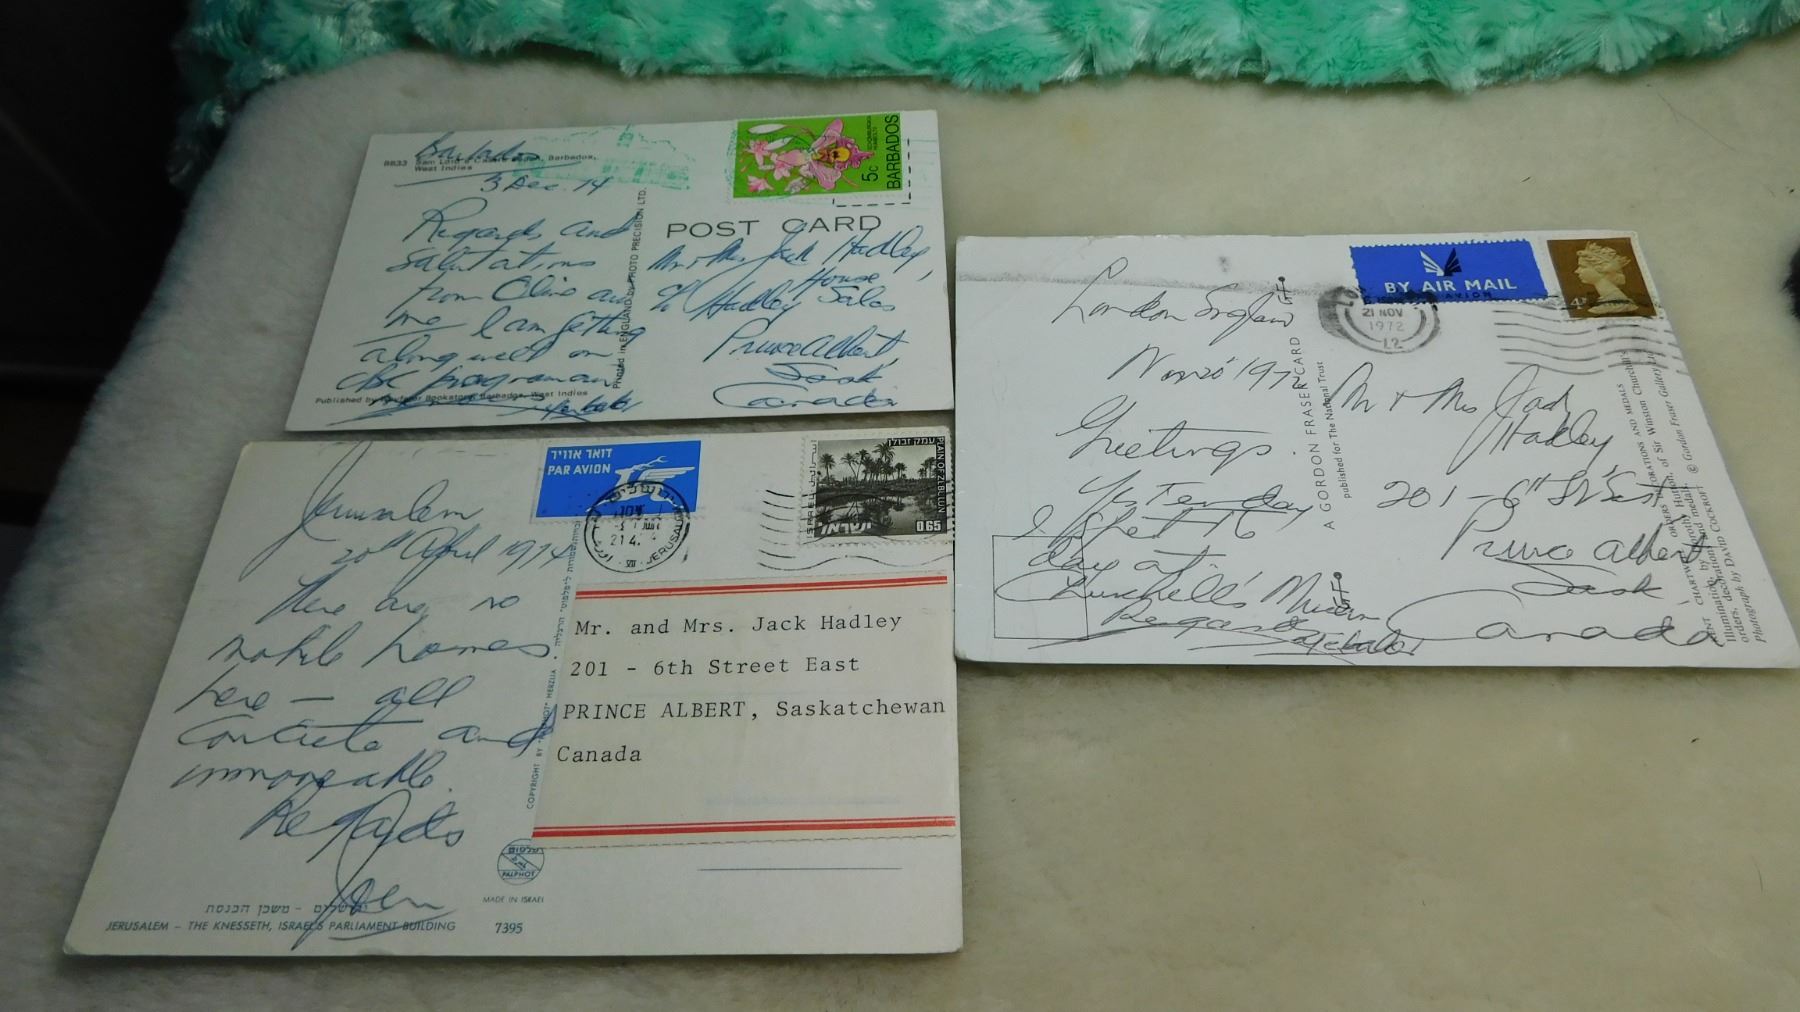 Barbados
8833 Sam Lord's Castle Barbados,
West Indies
3 Dec. 74
Regards and
salutations
from Olive and
me I am getting
along well on
CBC program
Published by Bookstore, Barbados, West Indies
Printed in ENGLAND by PHOTO PRECISION LTD.
5c
BARBADOS
POST CARD
Mr & Mrs Jack Hadley,
% Hadley House Sales
Prince Albert,
Sask
Canada
Jerusalem
20th April 1974
There are no
mobile homes
here — all
concrete and
immoveable.
Regards
דואר אוויר
PAR AVION
JERUSALEM
21 4.
עמק זבולון
PLAIN OF ZEBULUN
ISRAEL
ישראל
0.65
Mr. and Mrs. Jack Hadley
201 - 6th Street East
PRINCE ALBERT, Saskatchewan
Canada
COPYRIGHT BY PALPHOT HERZLIA
PALPHOT
MADE IN ISRAEL
ירושלים - משכן הכנסת
JERUSALEM – THE KNESSETH, ISRAEL'S PARLIAMENT BUILDING
7395
London England
Nov 20 1972
Greetings.
Yesterday
I spent the
day at
Churchill's Museum
Regards
A GORDON FRASER CARD
published for The National Trust
BY AIR MAIL
PAR AVION
21 NOV
1972
12
4P
Mr & Mrs Jack
Hadley
201 - 6th St East
Prince Albert
Sask
Canada
Photograph © Gordon Fraser Gallery